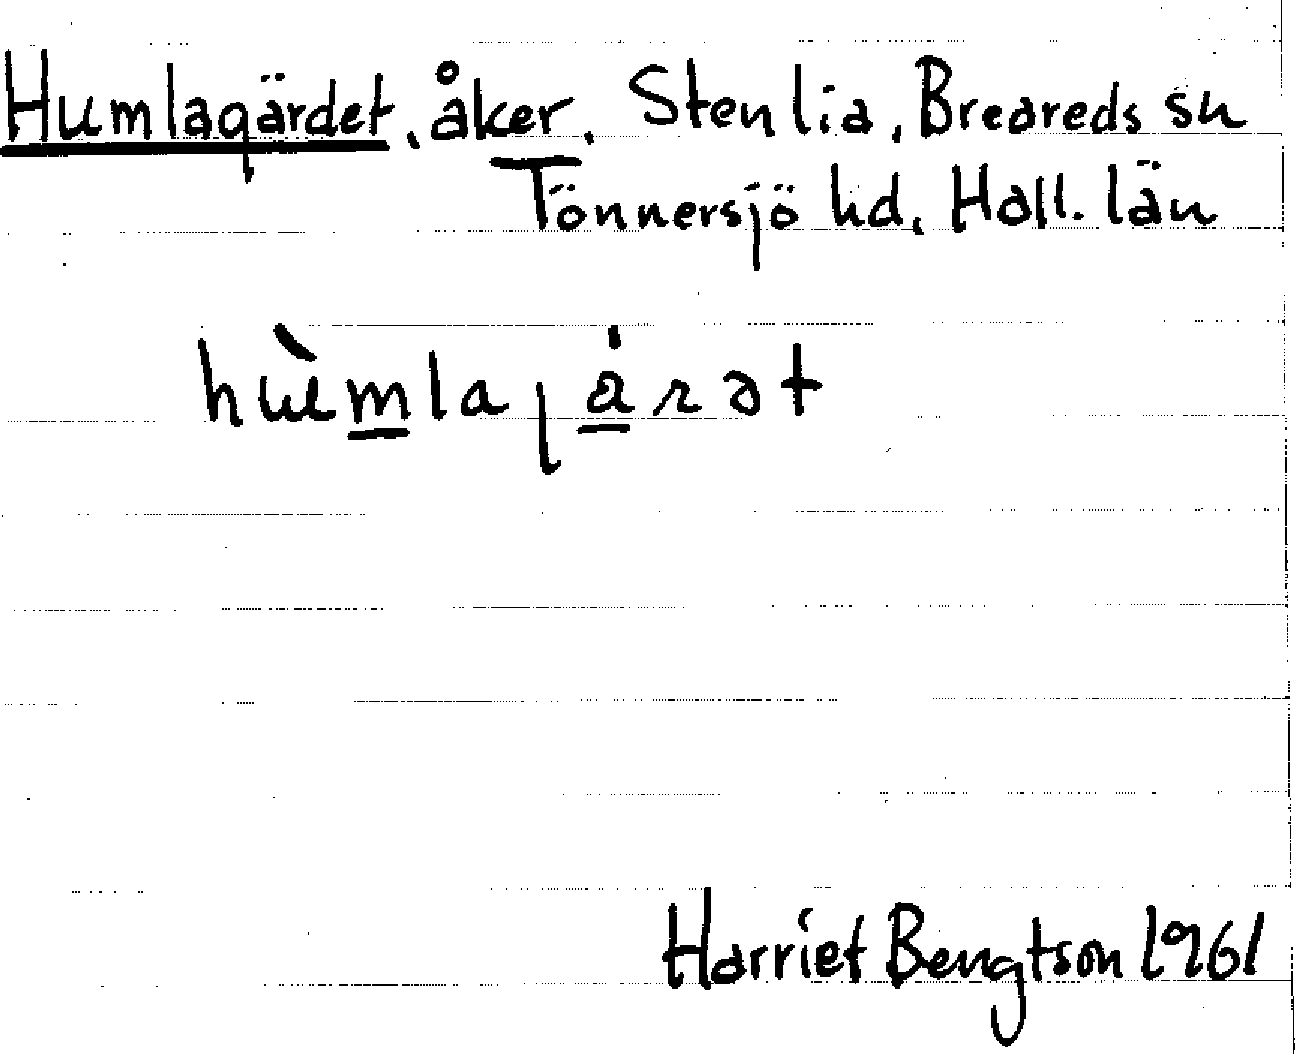 Humlagärdet, åker. Stenlia, Breareds sn
Tönnersjö hd, Hall. län
hùmlajárət
Harriet Bengtson 1961